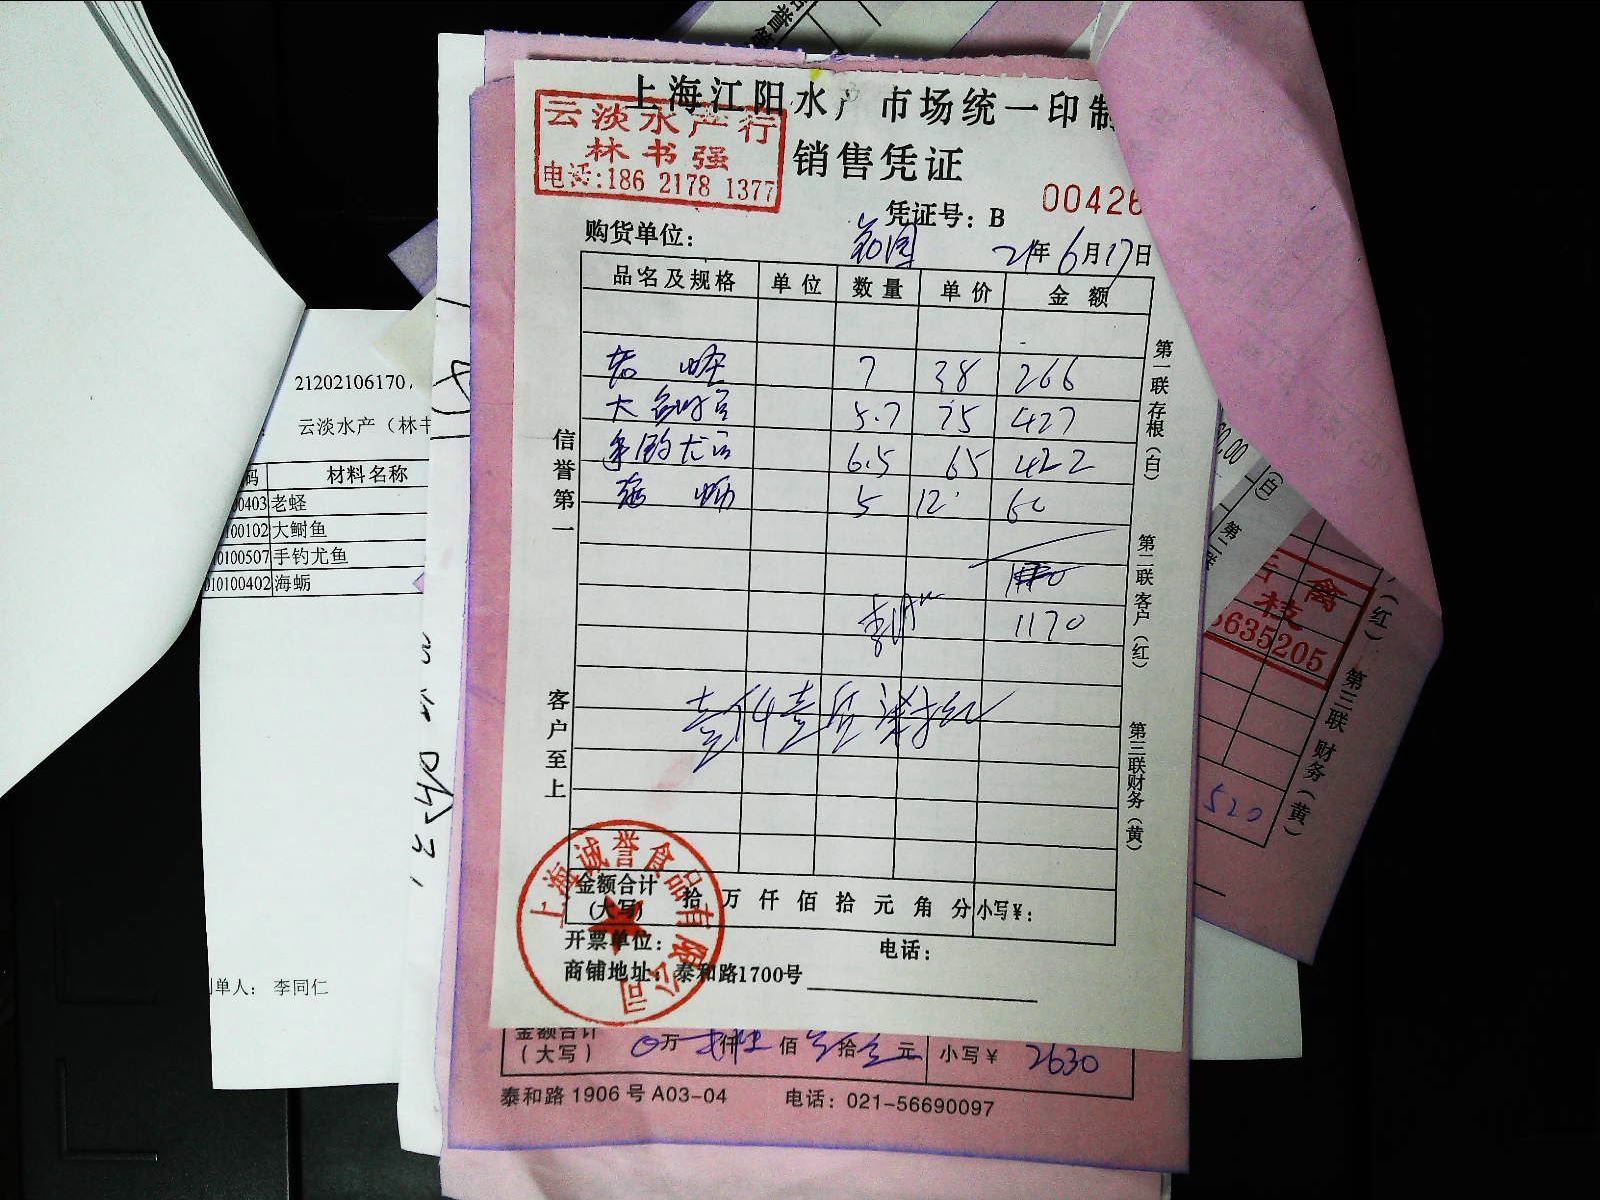 上海江阳水产市场统一印制
云淡水产行
林书强
电话:186 2178 1377
销售凭证
凭证号：B 00426
购货单位：
21年6月17日
品名及规格 单位 数量 单价 金额
老 蛏 7 38 266
大 5.7 75 427
手钓尤鱼 6.5 65 422
海 蛎 5 12 60
1170
信誉第一
客户至上
第一联存根(白)
第二联客户(红)
第三联财务(黄)
金额合计(大写) 拾 万 仟 佰 拾 元 角 分 小写¥：
开票单位： 电话：
商铺地址：泰和路1700号
上海诚誉食品有限公司
金额合计(大写) 万 仟 佰 拾 元 小写¥ 2630
泰和路1906号A03-04 电话：021-56690097
21202106170
云淡水产（林书
码 材料名称
00403 老蛏
100102 大鲥鱼
0100507 手钓尤鱼
010100402 海蛎
制单人： 李同仁
0.00
(白)
第二联
(红)
禽
枝
635205
第三联 财务(黄)
520